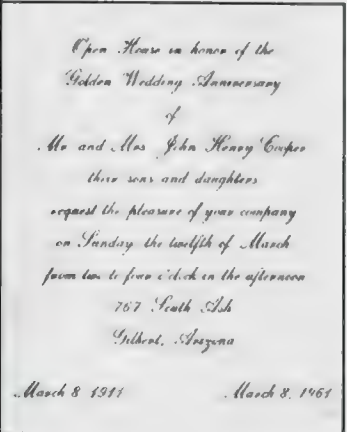 Open House in honor of the
Golden Wedding Anniversary
of
Mr and Mrs John Henry Cooper
their sons and daughters
request the pleasure of your company
on Sunday the twelfth of March
from two to four o'clock in the afternoon
767 South Ash
Gilbert, Arizona
March 8 1911 March 8, 1961